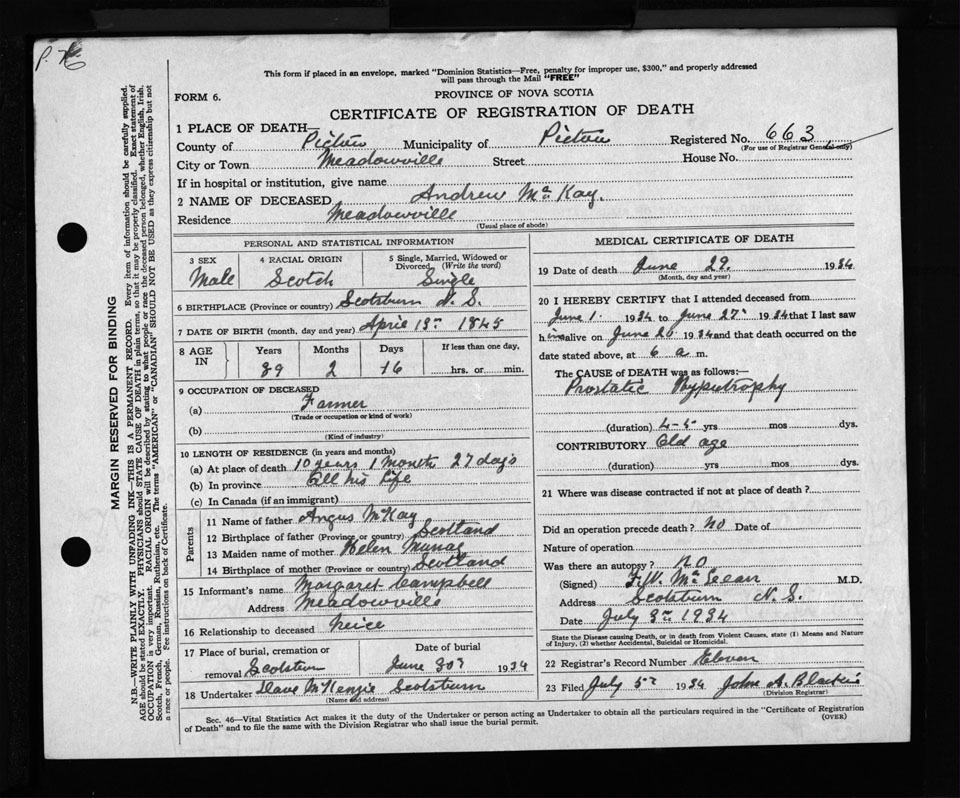 P. 76
This form if placed in an envelope, marked "Dominion Statistics—Free, penalty for improper use, $300," and properly addressed
will pass through the Mail "FREE"
FORM 6.
PROVINCE OF NOVA SCOTIA
CERTIFICATE OF REGISTRATION OF DEATH
1 PLACE OF DEATH—
County of Pictou Municipality of Pictou Registered No. 663
(For use of Registrar General only)
City or Town Meadowville Street House No.
If in hospital or institution, give name
2 NAME OF DECEASED Andrew McKay.
Residence Meadowville
(Usual place of abode)
PERSONAL AND STATISTICAL INFORMATION
3 SEX 4 RACIAL ORIGIN 5 Single, Married, Widowed or Divorced (Write the word)
Male Scotch Single
6 BIRTHPLACE (Province or country) Scotsburn N. S.
7 DATE OF BIRTH (month, day and year) April 13th 1845
8 AGE IN Years Months Days If less than one day,
89 2 16 hrs. or min.
9 OCCUPATION OF DECEASED
(a) Farmer
(Trade or occupation or kind of work)
(b)
(Kind of industry)
10 LENGTH OF RESIDENCE (in years and months)
(a) At place of death 10 years 1 Month 27 days
(b) In province All his Life
(c) In Canada (if an immigrant)
Parents
11 Name of father Angus McKay
12 Birthplace of father (Province or country) Scotland
13 Maiden name of mother Helen
14 Birthplace of mother (Province or country) Scotland
15 Informant's name Margaret Campbell
Address Meadowville
16 Relationship to deceased Neice
17 Place of burial, cremation or removal Scotsburn
Date of burial June 30th 1934
18 Undertaker Dave McKenzie Scotsburn
(Name and address)
MEDICAL CERTIFICATE OF DEATH
19 Date of death June 29. 1934
(Month, day and year)
20 I HEREBY CERTIFY that I attended deceased from
June 1. 1934 to June 27th 1934 that I last saw
him alive on June 26 1934 and that death occurred on the
date stated above, at 6 a m.
The CAUSE of DEATH was as follows:—
Prostatic Hypertrophy
(duration) 4-5 yrs mos dys.
CONTRIBUTORY Old age
(duration) yrs mos dys.
21 Where was disease contracted if not at place of death?
Did an operation precede death? No Date of
Nature of operation
Was there an autopsy? No
(Signed) McLean M.D.
Address Scotsburn N. S.
Date July 3rd 1934
State the Disease causing Death, or in death from Violent Causes, state (1) Means and Nature
of Injury, (2) whether Accidental, Suicidal or Homicidal.
22 Registrar's Record Number Eleven
23 Filed July 5th 1934 John A.
(Division Registrar)
Sec. 46—Vital Statistics Act makes it the duty of the Undertaker or person acting as Undertaker to obtain all the particulars required in the "Certificate of Registration
of Death" and to file the same with the Division Registrar who shall issue the burial permit.
(OVER)
MARGIN RESERVED FOR BINDING
N.B.—WRITE PLAINLY WITH UNFADING INK—THIS IS A PERMANENT RECORD. Every item of information should be carefully supplied.
AGE should be stated EXACTLY. PHYSICIANS should STATE CAUSE OF DEATH in plain terms, so that it may be properly classified. Exact statement of
OCCUPATION is very important. RACIAL ORIGIN will be described by stating to what people or race the deceased person belonged, whether English, Irish,
Scotch, French, German, Russian, Ruthenian, etc. The terms "AMERICAN" or "CANADIAN" SHOULD NOT BE USED as they express citizenship but not
a race or people. Fee instructions on back of Certificate.